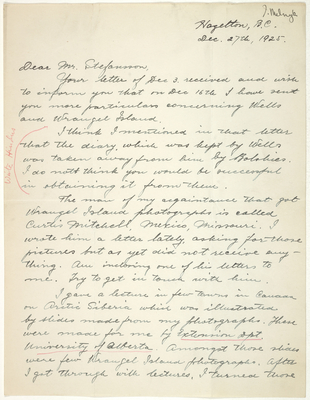 J. Melugh
Hazelton, B.C.
Dec. 27th, 1925.
Dear Mr. Stefansson
Your letter of Dec 3. received and wish
to inform you that on Dec 15th I have sent
you more particulars concerning Wells
and Wrangel Island.
I think I mentioned in that letter
that the diary, which was kept by Wells
was taken away from him by Bolshies.
I do not think you would be successful
in obtaining it from them.
The man of my acquaintance that got
Wrangel Island photographs is called
Curtis Mitchell, Mexico, Missouri. I
wrote him a letter lately asking for those
pictures but as yet did not receive any-
thing. Am inclosing one of his letters to
me. Try to get in touch with him.
I gave a lecture in few towns in Kansas
on Arctic Siberia which was illustrated
by slides made from my photographs. These
were made for me by Extension Dpt.
University of Alberta. Amongst those slides
were few Wrangel Island photographs. After
I got through with lectures, I turned those